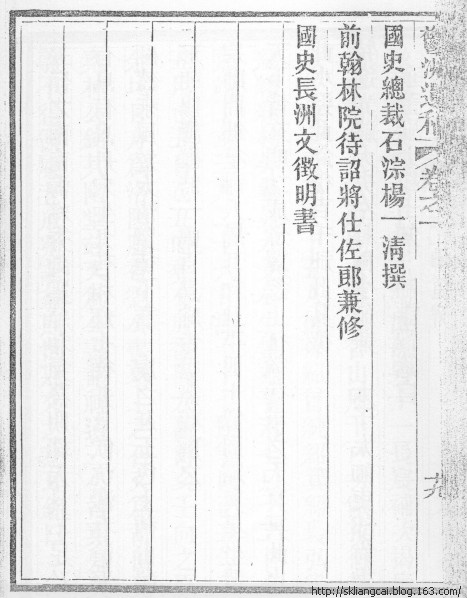 國史總裁石淙楊一清撰
前翰林院待詔將仕佐郎兼修
國史長洲文徵明書
卷之一
十九
http://skliangcai.blog.163.com/